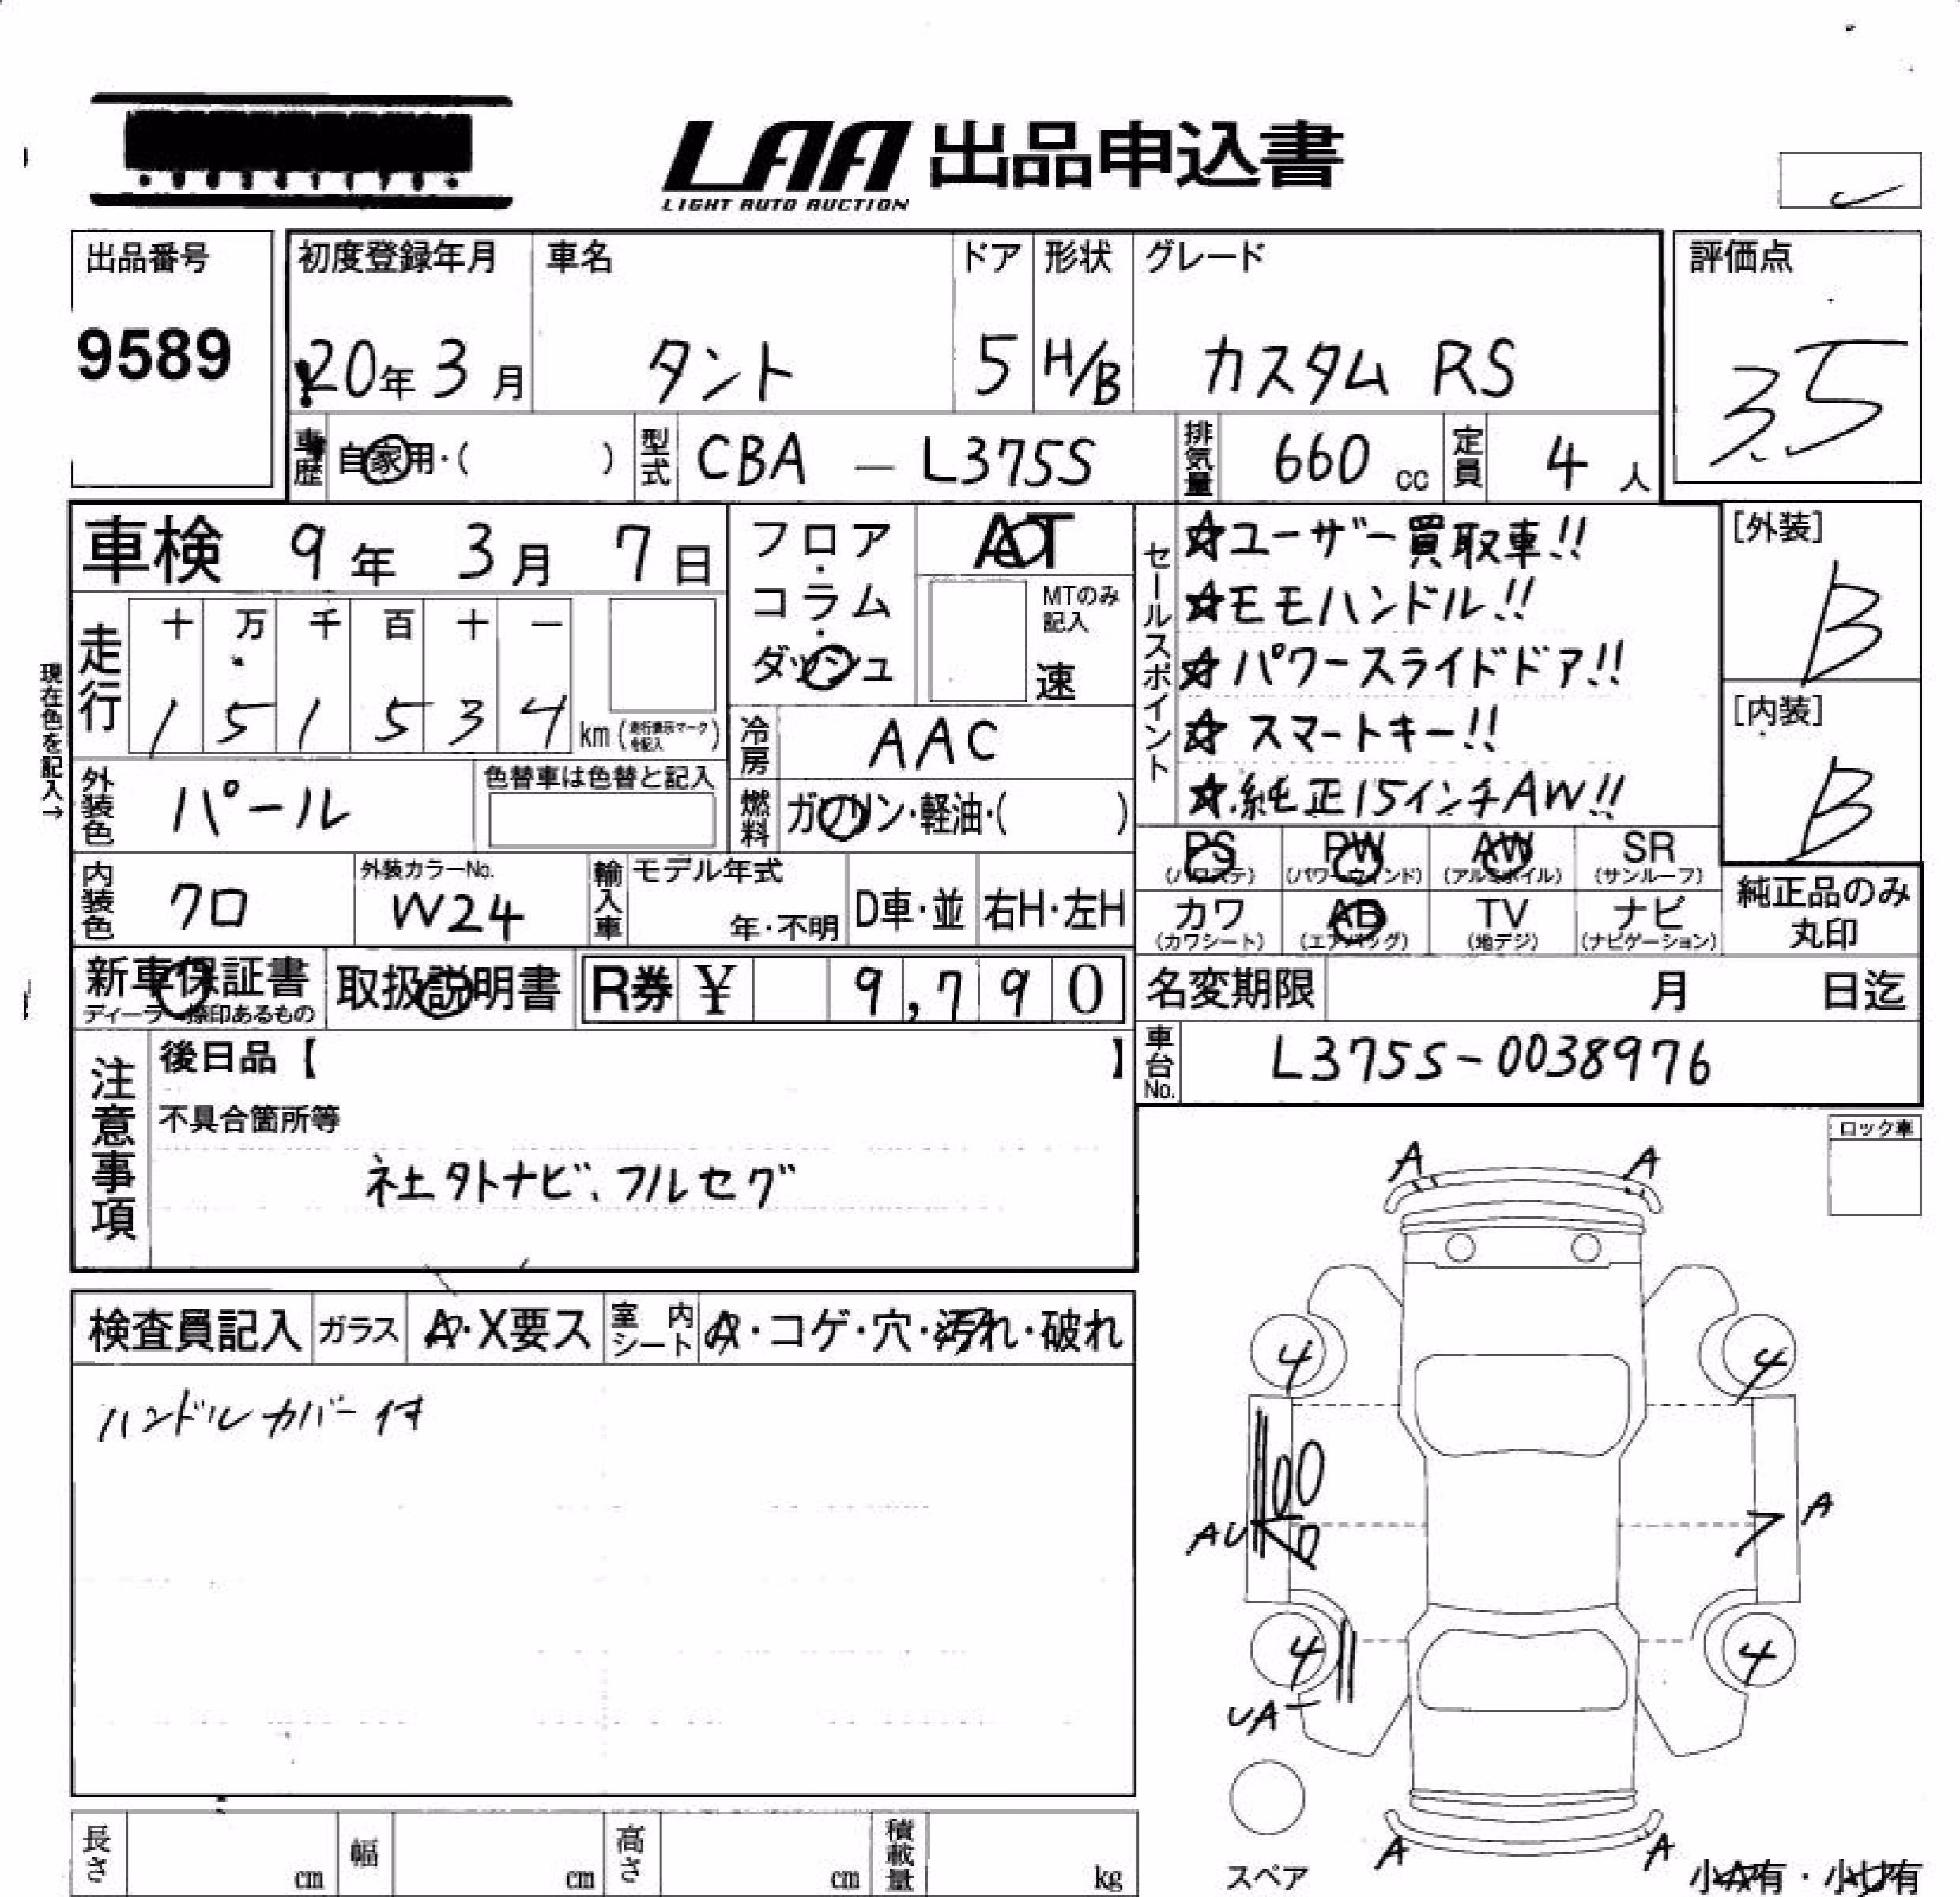 LAA 出品申込書
LIGHT AUTO AUCTION
出品番号
9589
初度登録年月
20年 3月
車名
タント
ドア
5
形状
H/B
グレード
カスタム RS
評価点
3.5
車歴 自家用・( )
型式 CBA - L375S
排気量 660 cc
定員 4 人
車検 9年 3月 7日
フロア・コラム・ダッシュ
AT
MTのみ記入
速
セールスポイント
☆ユーザー買取車!!
☆モモハンドル!!
☆パワースライドドア!!
☆スマートキー!!
☆純正15インチAW!!
[外装]
B
[内装]
B
現在色を記入→
走行
十 万 千 百 十 一
1 5 1 5 3 4 km (走行表示マークを記入)
冷房 AAC
外装色 パール
色替車は色替と記入
燃料 ガソリン・軽油・( )
内装色 クロ
外装カラーNo.
W24
輸入車
モデル年式
年・不明
D車・並
右H・左H
PS (パワステ)
PW (パワーウィンド)
AW (アルミホイル)
SR (サンルーフ)
カワ (カワシート)
AB (エアバッグ)
TV (地デジ)
ナビ (ナビゲーション)
純正品のみ
丸印
新車保証書
ディーラー捺印あるもの
取扱説明書
R券 ¥ 9,790
名変期限 月 日迄
車台No. L375S-0038976
注意事項
後日品【 】
不具合箇所等
社外ナビ、フルセグ
ロック車
検査員記入
ガラス A・X要ス
室内シート A・コゲ・穴・汚れ・破れ
ハンドルカバー付
A A
4 4
AU A
4 4
UA
A A
スペア
小A有・小U有
長さ cm
幅 cm
高さ cm
積載量 kg